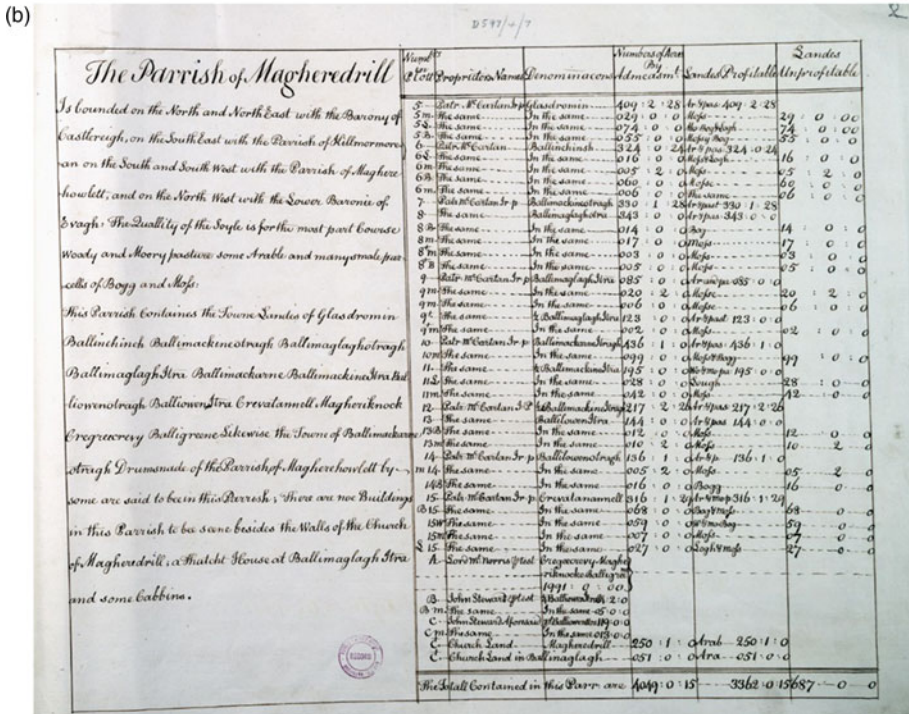 (b)
D597/4/7
2
The Parrish of Magheredrill
Is bounded on the North and North East with the Barony of
Castlereigh, on the South East with the Parrish of Killmormore
an on the South and South West with the Parrish of Maghere
howlett; and on the North West with the Lower Baronie of
Evagh: The Quallity of the Soyle is for the most part Course
Woody and Moory pasture some Arable and many smale par
cells of Bogg and Moss:
This Parrish Containes the Towne Landes of Glasdromin
Ballinehinch Ballimackeneotragh Ballimaglaghotragh
Ballimaglagh Itra Ballimackarne Ballimackine Itra Bal
liowenotragh Balliowen Itra Crevatannell Magheriknock
Cregrecrevy Balligreene Likewise the Towne of Ballimackarne
otragh Drumsnade of the Parrish of Magherehowlett by
some are said to be in this Parrish; There are noe Buildings
in this Parrish to be seene besides the Walls of the Church
of Magheredrill; a Thatcht House at Ballimaglagh Itra
and some Cabbins.
Numbr Plott Proprietors Names Denominacons Numbers of Acrs By Admeasmt: Landes Profitable Landes Unprofitable
5 Patr. McCartan Ir p Glasdromin 409 : 2 : 28 Ar & pas 409 : 2 : 28
5 m The same In the same 029 : 0 : 0 Moss 29 : 0 : 00
The same In the same 074 : 0 : 0 74 : 0 : 00
5 B The same In the same 055 : 0 : 0 55 : 0 : 0
6 Patr. McCartan Ballinehinsh 324 : 0 : 24 Ar & pas 324 : 0 : 24
6 L The same In the same 016 : 0 : 0 16 : 0 : 0
6 m The same In the same 005 : 2 : 0 Moss 05 : 2 : 0
6 B The same In the same 060 : 0 : 0 Moss 60 : 0 : 0
6 m The same In the same 006 : 0 : 0 The same 06 : 0 : 0
7 Patr McCartan Ir p Ballimackineotragh 330 : 1 : 28 Ar & past 330 : 1 : 28
8 The same Ballimaglaghotra 343 : 0 : 0 Ar & pas 343 : 0 : 0
8 B The same In the same 014 : 0 : 0 Bog 14 : 0 : 0
8 m The same In the same 017 : 0 : 0 Moss 17 : 0 : 0
8 m The same In the same 003 : 0 : 0 Moss 03 : 0 : 0
8 B The same In the same 005 : 0 : 0 Moss 05 : 0 : 0
9 Patr McCartan Ir p Ballimaglagh Itra 085 : 0 : 0 085 : 0 : 0
9 m The same In the same 020 : 2 : 0 Mosse 20 : 2 : 0
9 m The same In the same 006 : 0 : 0 Mosse 06 : 0 : 0
The same Ballimaglagh Itra 123 : 0 : 0 Ar & past 123 : 0 : 0
9 m The same In the same 002 : 0 : 0 Moss 02 : 0 : 0
10 Patr McCartan Ir p 436 : 1 : 0 Ar & pas 436 : 1 : 0
10 m The same In the same 099 : 0 : 0 Moss & Bogg 99 : 0 : 0
11 The same Ballimackine Itra 195 : 0 : 0 195 : 0 : 0
11 L The same In the same 028 : 0 : 0 Lough 28 : 0 : 0
11 m The same In the same 042 : 0 : 0 Moss 42 : 0 : 0
12 Patr McCartan I P 217 : 2 : 26 Ar & pas 217 : 2 : 26
13 The same Balliowen Itra 144 : 0 : 0 Ar & pas 144 : 0 : 0
13 B The same In the same 012 : 0 : 0 Moss 12 : 0 : 0
13 m The same In the same 010 : 2 : 0 Moss 10 : 2 : 0
14 Patr McCartan Ir p Balliowenotragh 136 : 1 : 0 Ar & p 136 : 1 : 0
m 14 The same In the same 005 : 2 : 0 Moss 05 : 2 : 0
14 B The same In the same 016 : 0 : 0 Bogg 16 : 0 : 0
15 Patr McCartan Ir p Crevatanamell 316 : 1 : 29 316 : 1 : 29
B 15 The same In the same 068 : 0 : 0 Bog & moss 68 : 0 : 0
15 The same In the same 059 : 0 : 0 59 : 0 : 0
15 m The same In the same 007 : 0 : 0 Moss 07 : 0 : 0
L 15 The same In the same 027 : 0 : 0 Logh & moss 27 : 0 : 0
A Cregrecrevy Maghe
riknocke Balligree
1991 : 0 : 00
B John Steward
B m The same In the same 05 : 0 : 0
C John Steward Aforesaid
C m The same In the same 013 : 0 : 0
C Church Land Magheredrill 250 : 1 : 0 Arab 250 : 1 : 0
C Church Land in Ballinaglagh 051 : 0 : 0 Ara 051 : 0 : 0
The Totall Contained in this Parr: are 4049 : 0 : 15 3362 : 0 : 15 687 0 0